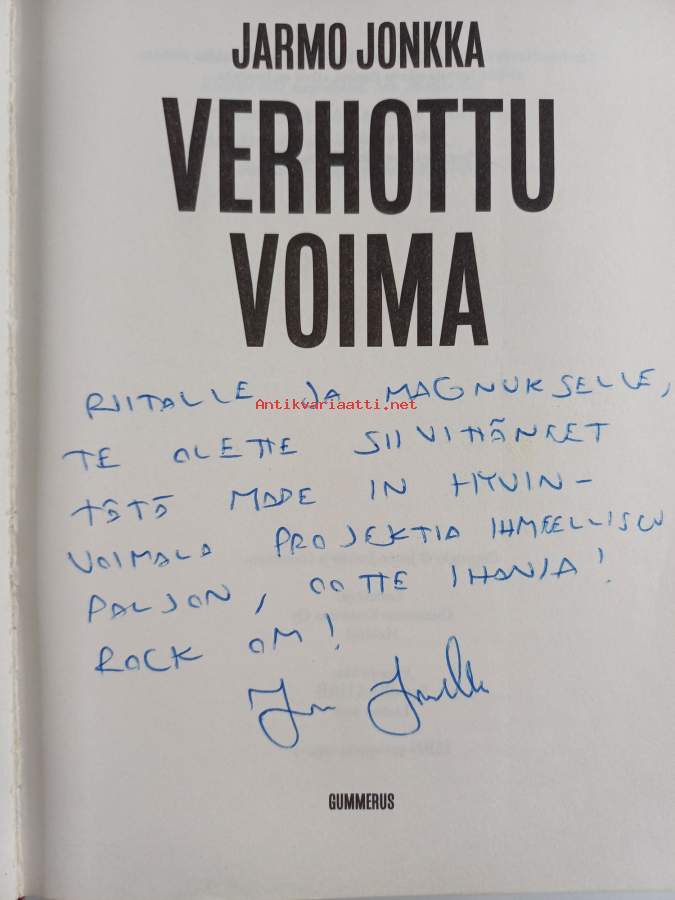 JARMO JONKKA
VERHOTTU
VOIMA
RIITALLE JA MAGNUKSELLE,
Antikvariaatti.net
TE OLETTE SIIVITTÄNEET
TÄTÄ MADE IN HYVIN-
VOIMALA PROJEKTIA IHMEELLISEN
PALJON, OOTTE IHANIA!
ROCK OM!
GUMMERUS